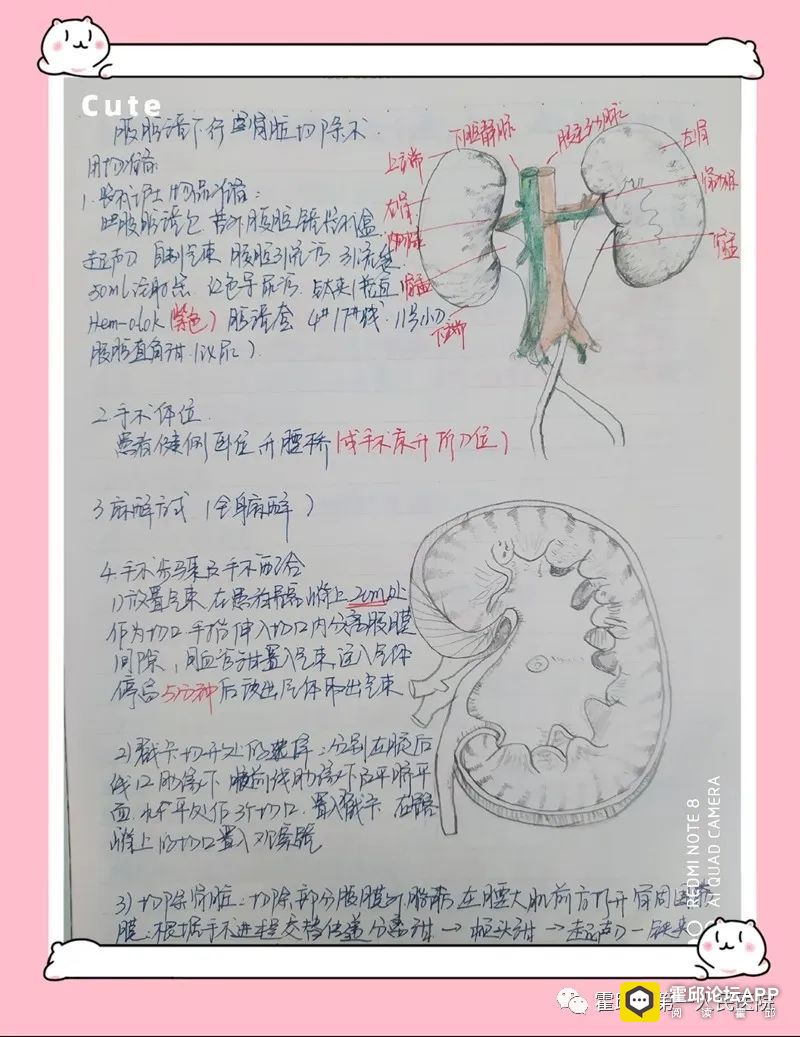 Cute
腹腔镜下行肾脏切除术
用物准备
1.
腹腔镜包
超声刀 自制气束 腹腔引流管 引流袋
50ml注射器 红色导尿管 钛夹
Hem-olok(紫色) 腔镜套 4# 1#线 11号小刀
腹腔直角钳(泌尿)
上端
下腔静脉
腹主动脉
左肾
右肾
输尿管
下端
2.手术体位
患者健侧卧位 升腰桥(或手术床升 折刀位)
3麻醉方式(全身麻醉)
4.手术步骤及手术配合
1)放置气束 在患者髂嵴上2cm处
作为切口 手指伸入切口内分离腹膜
间隙,用血管钳置入气束 送入气体
停留5分钟后放出气体取出气束
2)戳卡切开处的选择:分别在腋后
线12肋缘下 腋前线肋缘下及平脐平
面 水平处作3个切口 置入戳卡 在髂
嵴上的切口置入观察镜
3)切除肾脏:切除部分腹膜外脂肪 在腰大肌前方打开肾周
膜:根据手术进程交替传递分离钳→ →超声刀-钛夹
REDMI NOTE 8
AI QUAD CAMERA
霍邱 第一人民医院
霍邱论坛APP
阅读霍邱